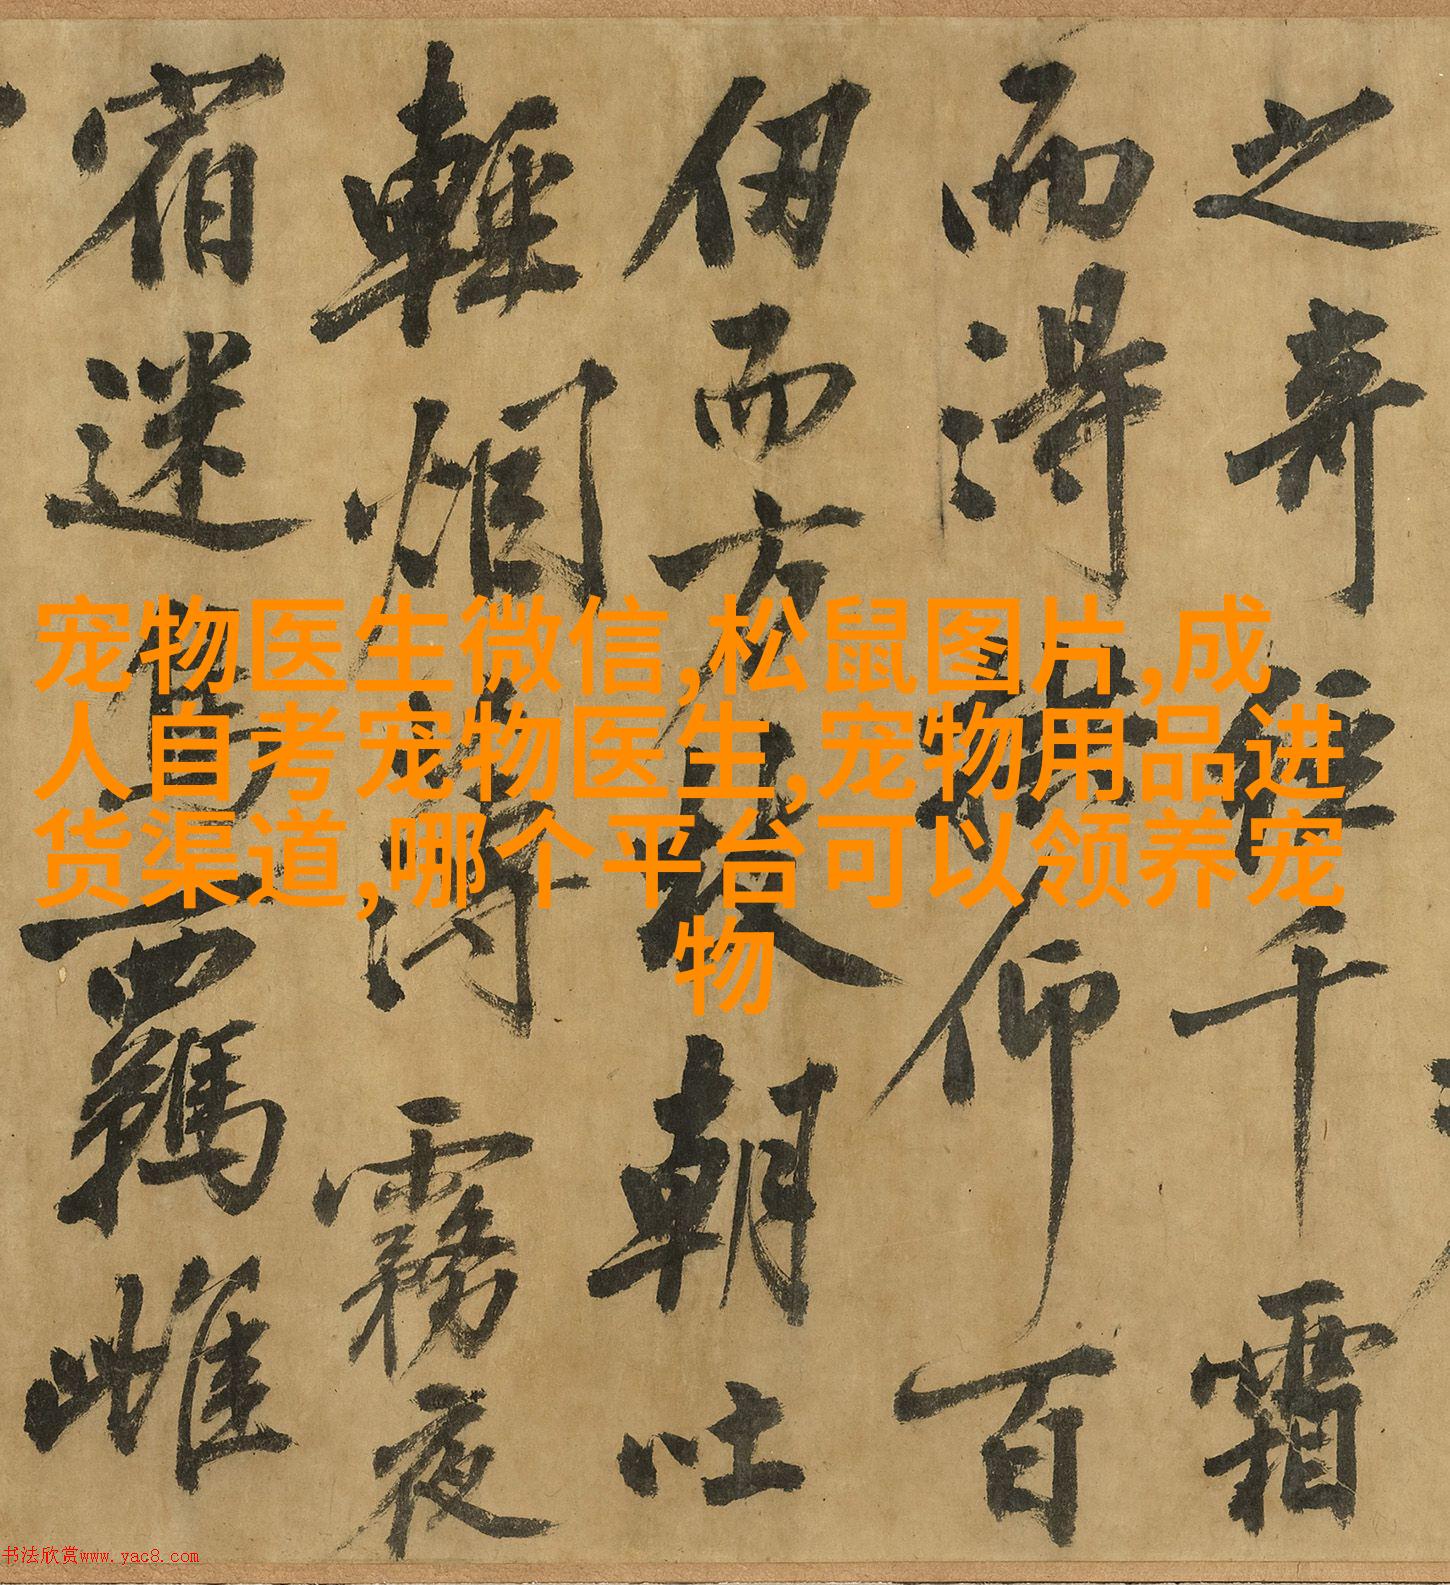 宠物医生微信,松鼠图片,成
人自考宠物医生,宠物用品进
货渠道,哪个平台可以领养宠
物
之奇經千霜
而得拱仰百
仞而方枝朝吐
輕烟薄霧夜
宿迷鳥羈雌
书法欣赏www.yac8.com